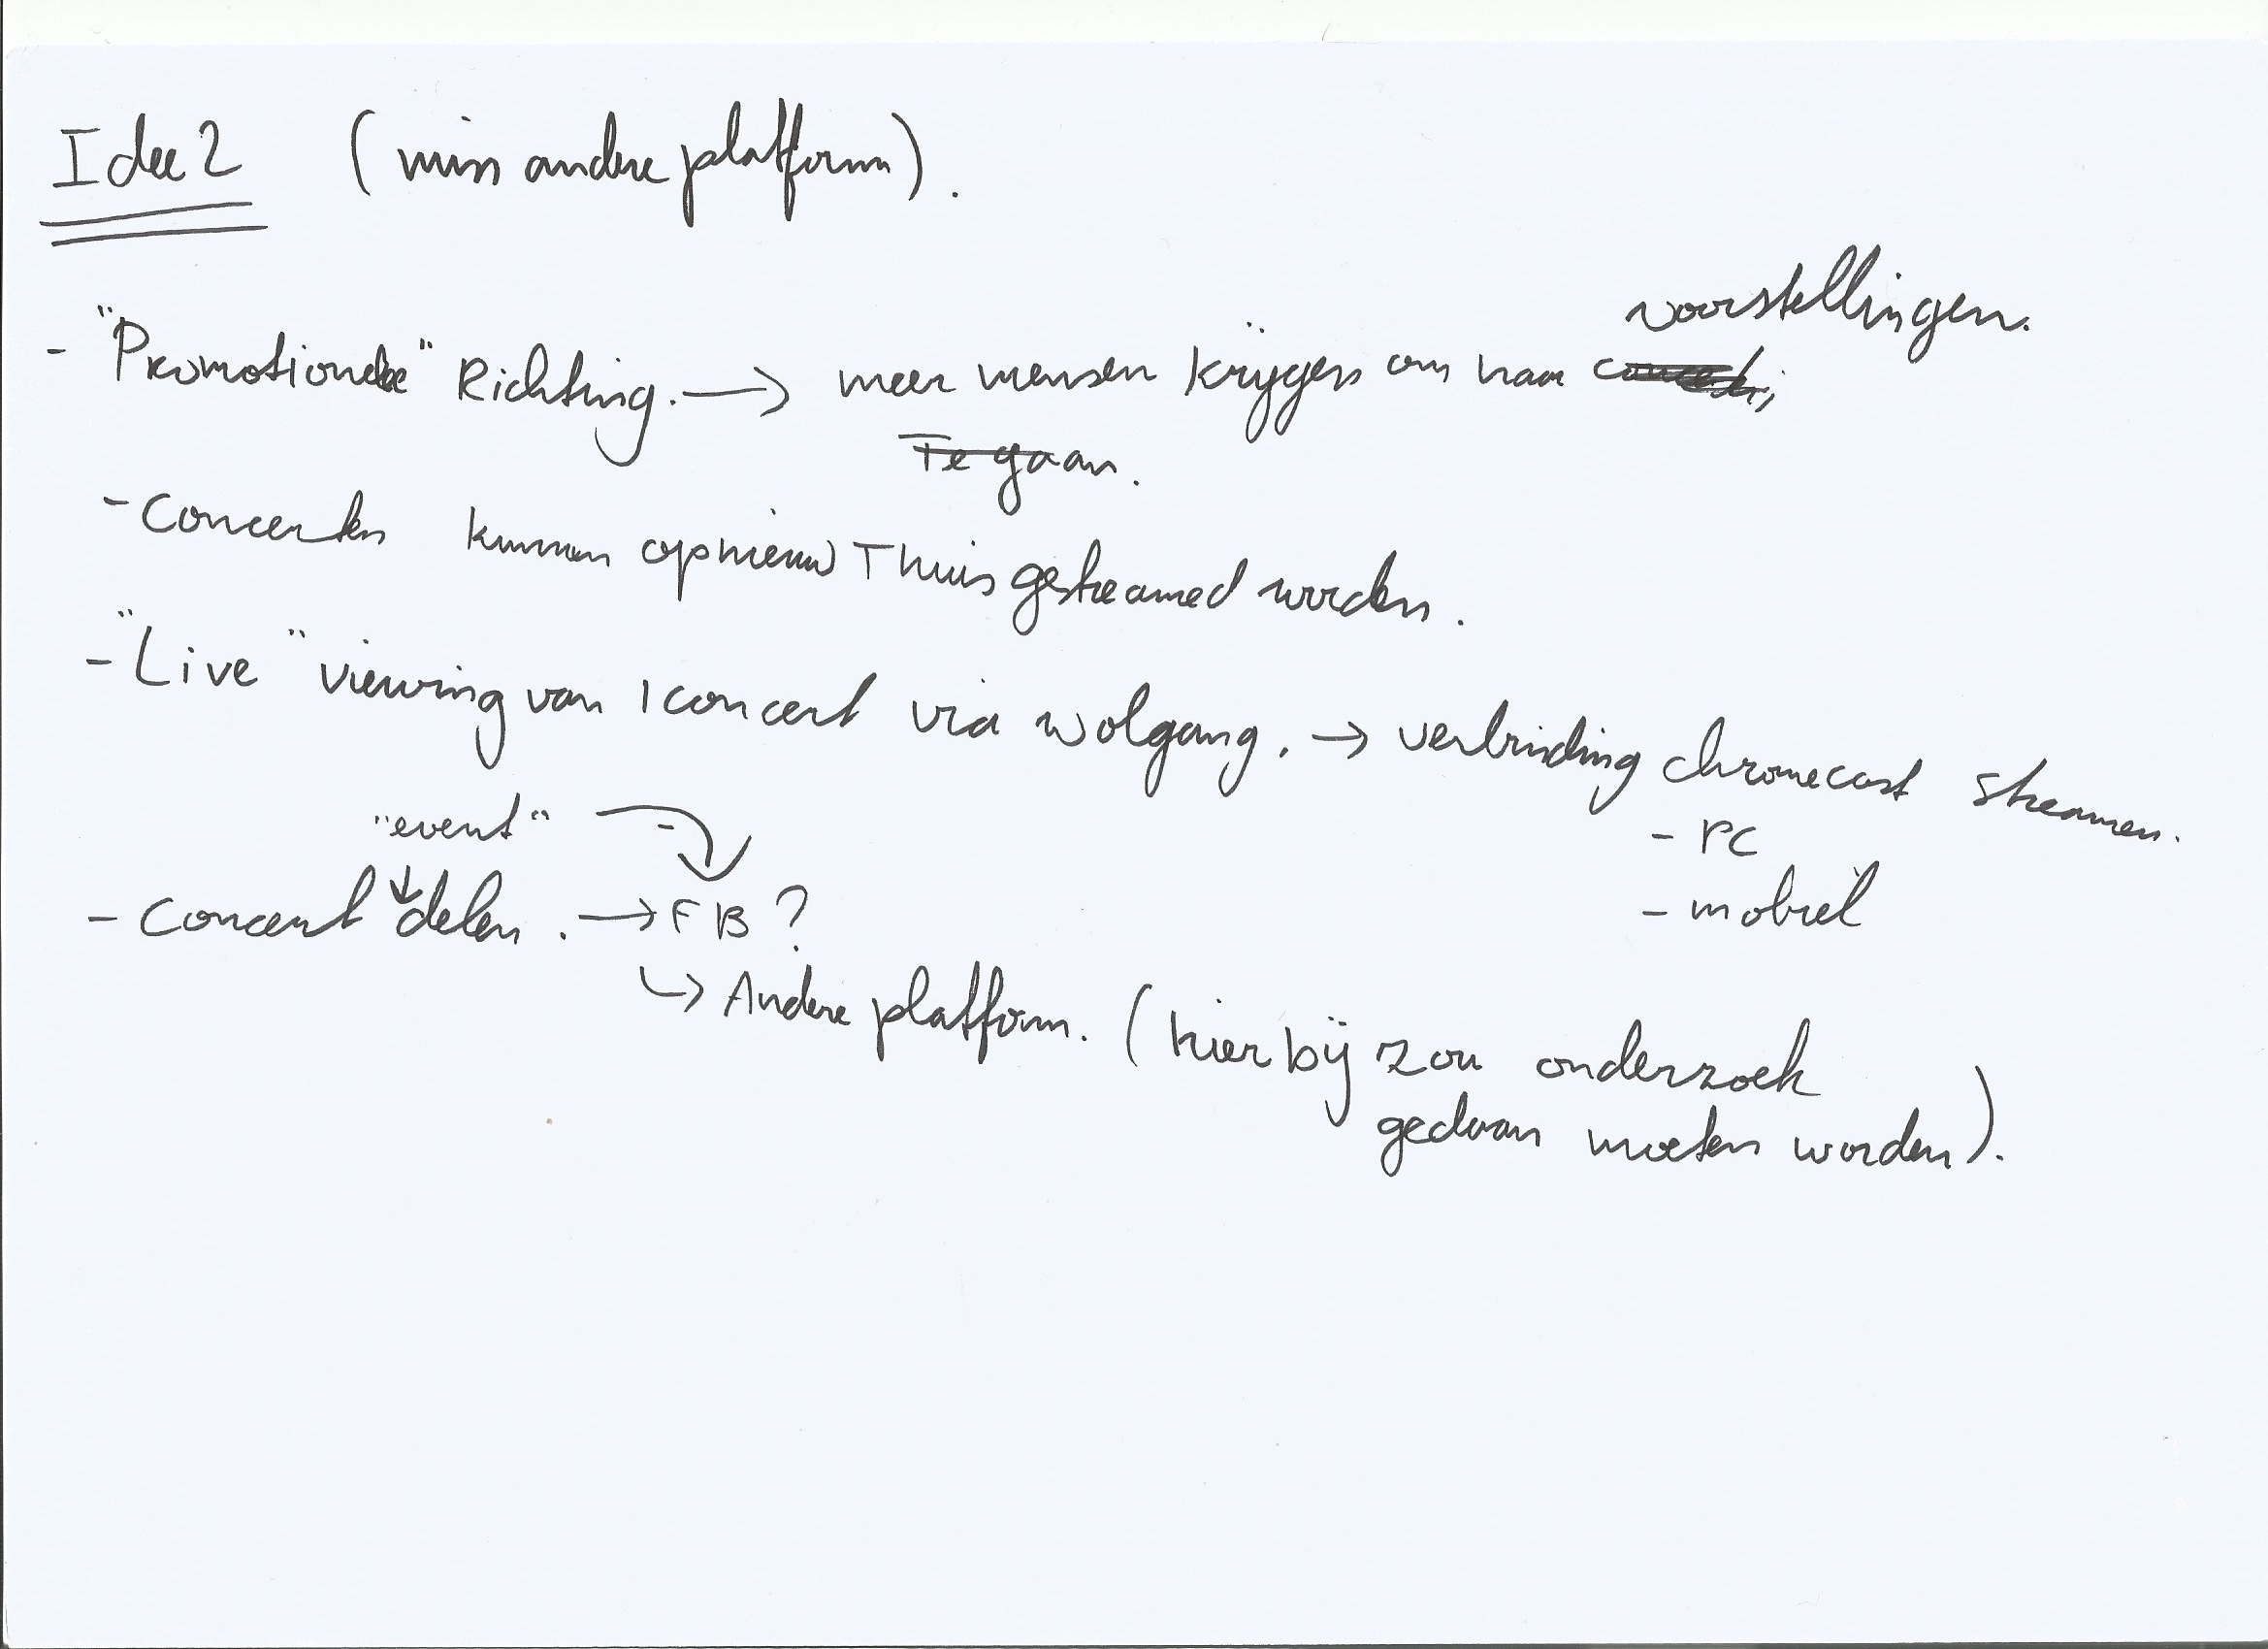 Idee 2 (miss andere platform).
voorstellingen.
- "Promotionele" Richting. → meer mensen krijgen om naar
Te gaan.
- Concerten kunnen opnieuw Thuis gestreamed worden.
- "Live" viewing van 1 concert via wolgang. → verbinding chromecast streamen.
- PC
"event"
- mobiel
- Concert delen. → FB?
↳ Andere platform. (hierbij zou onderzoek
gedaan moeten worden).